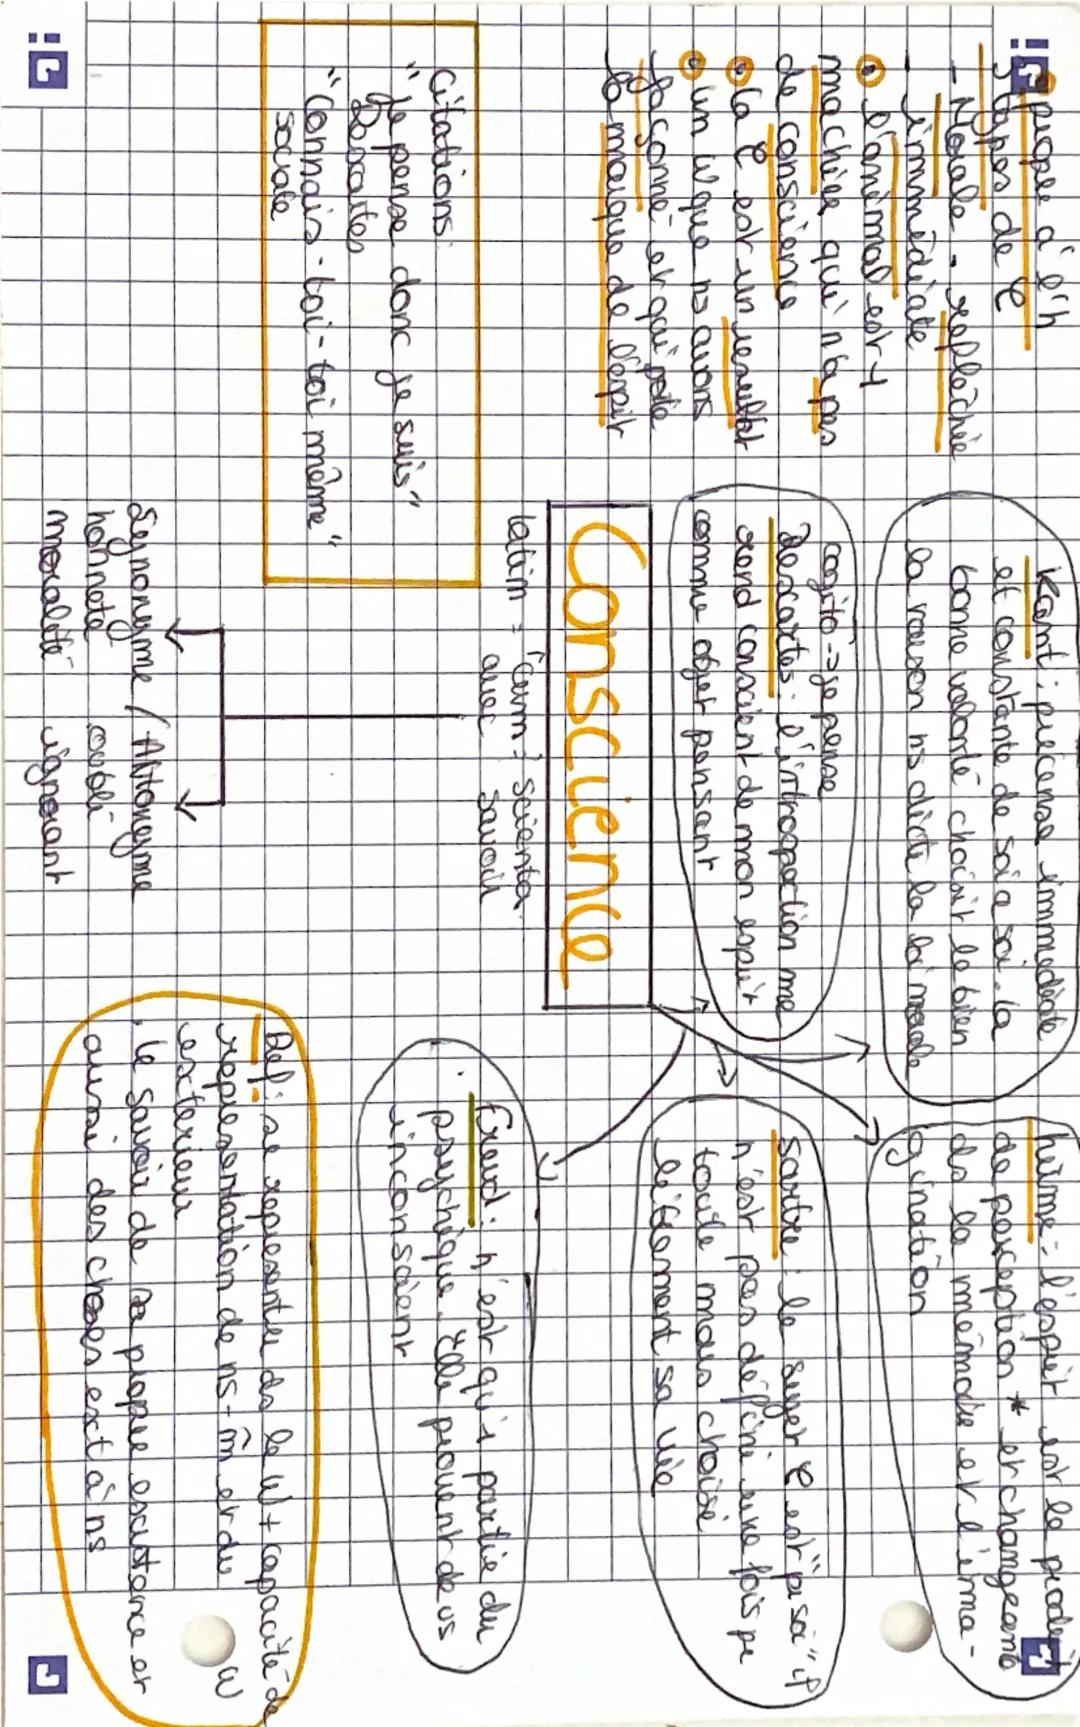 propre à l'h
Types de C
- Morale - reflechie
- immédiate
l'animal est 1
machine qui n'a pas
de conscience
la C est un resultat
un W que ns avons
façonné et qui porte
la marque de l'esprit
Citations:
"Je pense donc je suis"
Descartes
"Connais-toi-toi même"
socrate
Kant: précense immédiate
et constante de soi a soi. la
bonne volonté choisit le bien
la raison ns dicte la loi morale
cogito => je pense
Descartes: l'introspection me
rend conscient de mon esprit
comme objet pensant
Conscience
latin = "cum" scienta
avec savoir
Synonyme / Antonyme
honneté oubli
moralité ignorant
hume: l'esprit est le produit
de perception * et changeante
ds la mémoire et l'ima-
gination
Sartre: le sujet C est "pr soi" il
n'est pas défini une fois pr
toute mais choisi
librement sa vie
Freud: n'est qu'1 partie du
psychique. Elle provient de
inconscient
Def: se représenter ds le W + capacité de
représentation de ns-m̂ et du W
exterieur
. le savoir de sa propre existance et
aussi des choses ext à ns